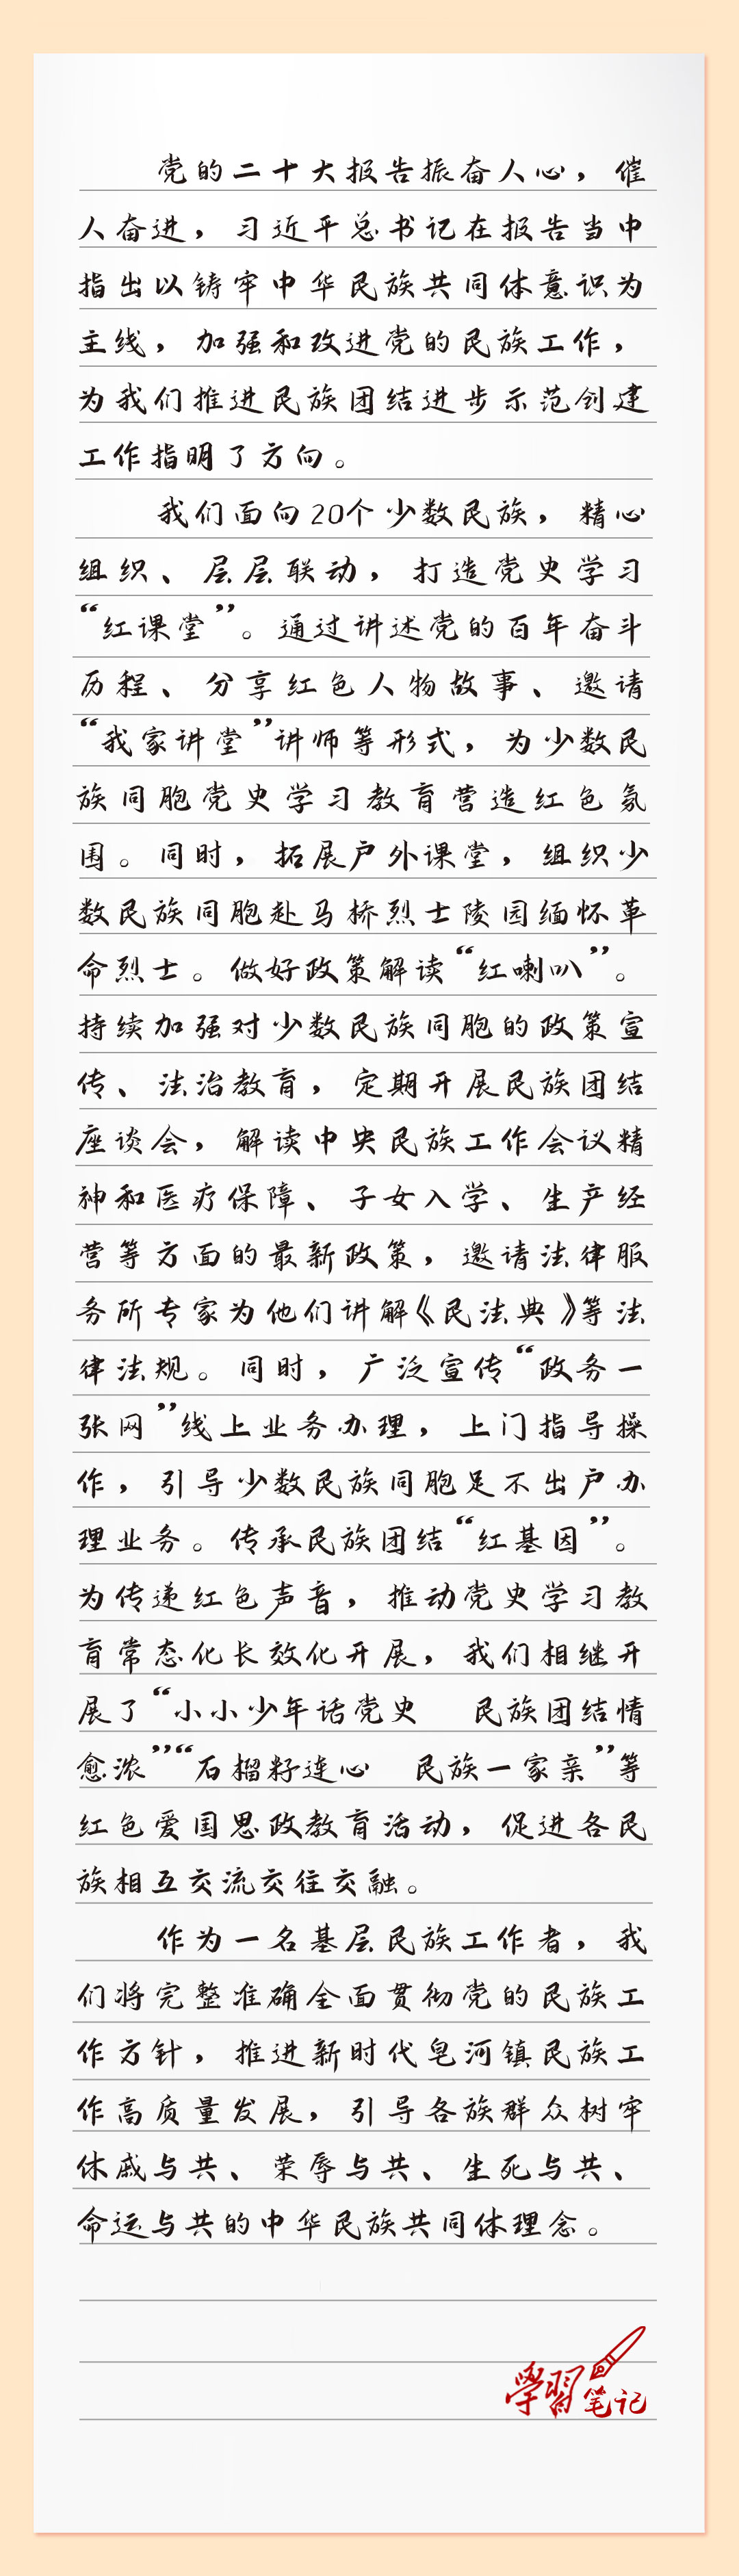 党的二十大报告振奋人心，催
人奋进，习近平总书记在报告当中
指出以铸牢中华民族共同体意识为
主线，加强和改进党的民族工作，
为我们推进民族团结进步示范创建
工作指明了方向。
我们面向20个少数民族，精心
组织、层层联动，打造党史学习
“红课堂”。通过讲述党的百年奋斗
历程、分享红色人物故事、邀请
“我家讲堂”讲师等形式，为少数民
族同胞党史学习教育营造红色氛
围。同时，拓展户外课堂，组织少
数民族同胞赴马桥烈士陵园缅怀革
命烈士。做好政策解读“红喇叭”。
持续加强对少数民族同胞的政策宣
传、法治教育，定期开展民族团结
座谈会，解读中央民族工作会议精
神和医疗保障、子女入学、生产经
营等方面的最新政策，邀请法律服
务所专家为他们讲解《民法典》等法
律法规。同时，广泛宣传“政务一
张网”线上业务办理，上门指导操
作，引导少数民族同胞足不出户办
理业务。传承民族团结“红基因”。
为传递红色声音，推动党史学习教
育常态化长效化开展，我们相继开
展了“小小少年话党史　民族团结情
愈浓”“石榴籽连心　民族一家亲”等
红色爱国思政教育活动，促进各民
族相互交流交往交融。
作为一名基层民族工作者，我
们将完整准确全面贯彻党的民族工
作方针，推进新时代皂河镇民族工
作高质量发展，引导各族群众树牢
休戚与共、荣辱与共、生死与共、
命运与共的中华民族共同体理念。
學習笔记